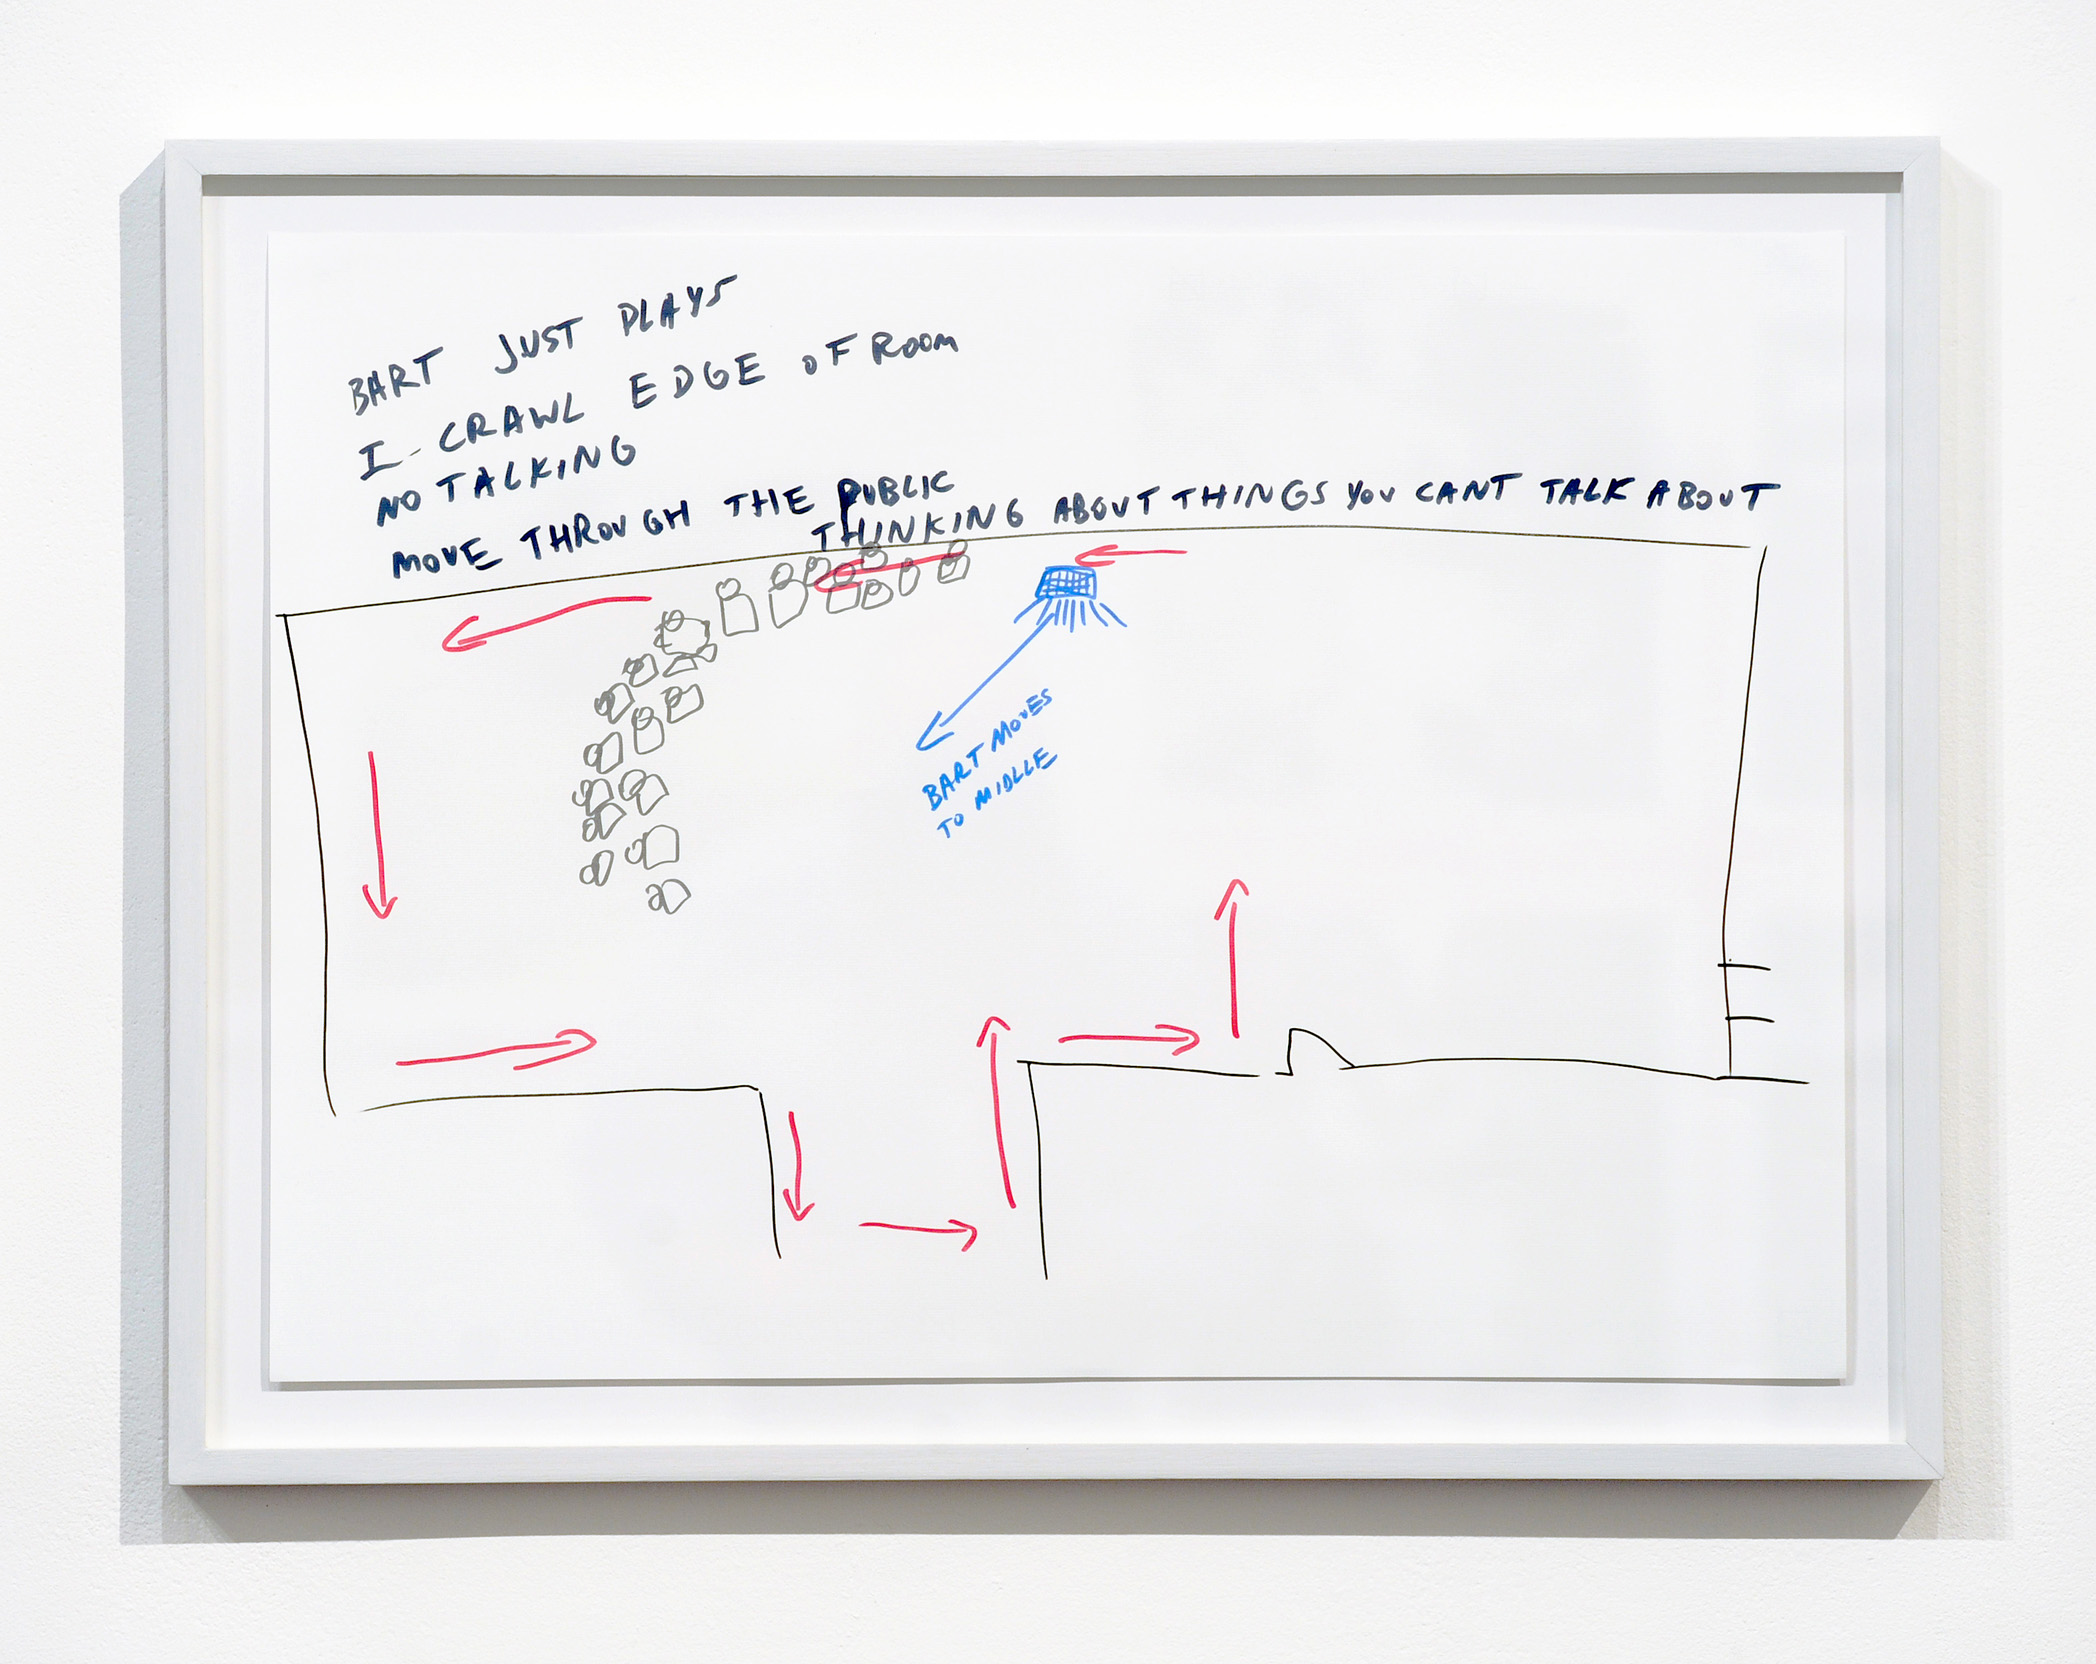 BART JUST PLAYS
I - CRAWL EDGE OF ROOM
NO TALKING
MOVE THROUGH THE PUBLIC
THINKING ABOUT THINGS YOU CANT TALK ABOUT
BART MOVES
TO MIDLLE